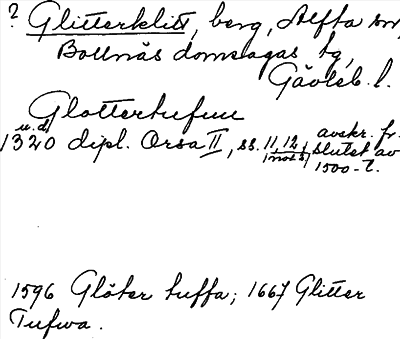 ? Glitterklitt, berg, Alfta sn,
Bollnäs domsagas tg,
Gävleb. l.
Glottertufuu
u. d.
1320 dipl. Orsa II, ss. 11, 12, avskr. fr.
slutet av
1500-t.
1596 Glöter tuffa; 1667 Glitter
Tufwa.